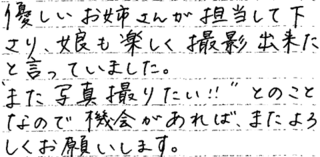 優しいお姉さんが担当して下
さり、娘も楽しく撮影出来た
と言っていました。
"また写真撮りたい!!"とのこと
なので機会があれば、またよろ
しくお願いします。